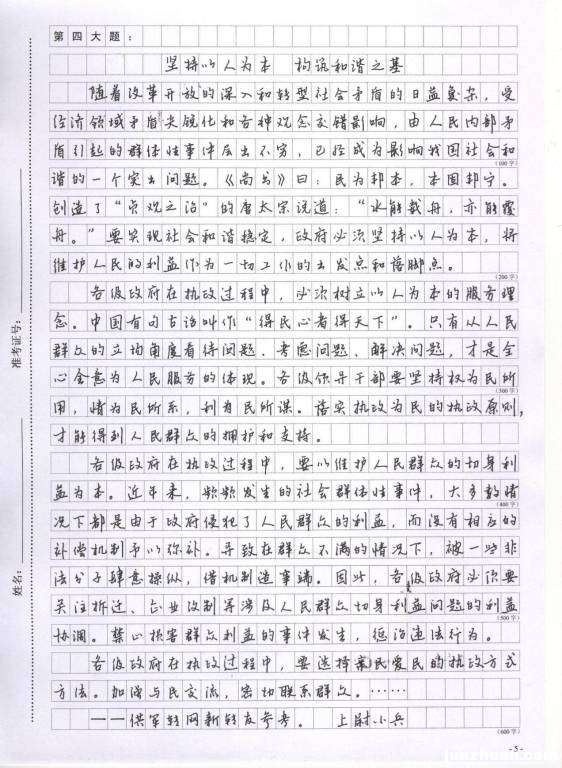 第四大题:
坚持以人为本 构筑和谐之基
随着改革开放的深入和转型社会矛盾的日益复杂,受
经济领域矛盾尖锐化和各种观念交错影响,由人民内部矛
盾引起的群体性事件层出不穷,已经成为影响我国社会和
(100字)
谐的一个突出问题。《尚书》曰:民为邦本,本固邦宁。
创造了“贞观之治”的唐太宗说道:“水能载舟,亦能覆
舟。”要实现社会和谐稳定,政府必须坚持以人为本,将
维护人民的利益作为一切工作的出发点和落脚点。
(200字)
各级政府在执政过程中,必须树立以人为本的服务理
念。中国有句古话叫作“得民心者得天下”。只有从人民
群众的立场角度看待问题、考虑问题、解决问题,才是全
心全意为人民服务的体现。各级领导干部要坚持权为民所
(300字)
用,情为民所系,利为民所谋。落实执政为民的执政原则,
才能得到人民群众的拥护和支持。
各级政府在执政过程中,要以维护人民群众的切身利
益为本。近年来,频频发生的社会群体性事件,大多数情
(400字)
况下都是由于政府侵犯了人民群众的利益,而没有相应的
补偿机制予以弥补。导致在群众不满的情况下,被一些非
法分子肆意操纵,借机制造事端。因此,各级政府必须要
关注拆迁、企业改制等涉及人民群众切身利益问题的利益
(500字)
协调。禁止损害群众利益的事件发生,惩治违法行为。
各级政府在执政过程中,要选择亲民爱民的执政方式
方法。加强与民交流,密切联系群众。……
——供军转网新转友参考。 上尉小兵
(600字)
准考证号:
姓名:
-5-